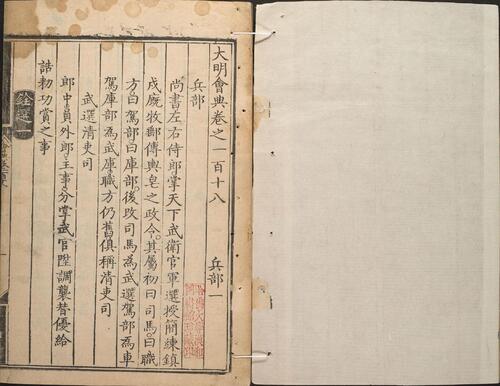 大明會典卷之一百十八
兵部一
兵部
尚書左右侍郎掌天下武衛官軍選授簡練鎮
戍厩牧郵傳輿皂之政令其屬初曰司馬曰職
方曰駕部曰庫部後改司馬為武選駕部為車
駕庫部為武庫職方仍舊俱稱清吏司
武選清吏司
郎中員外郎主事分掌武官陞調襲替優給
誥勑功賞之事
銓選一